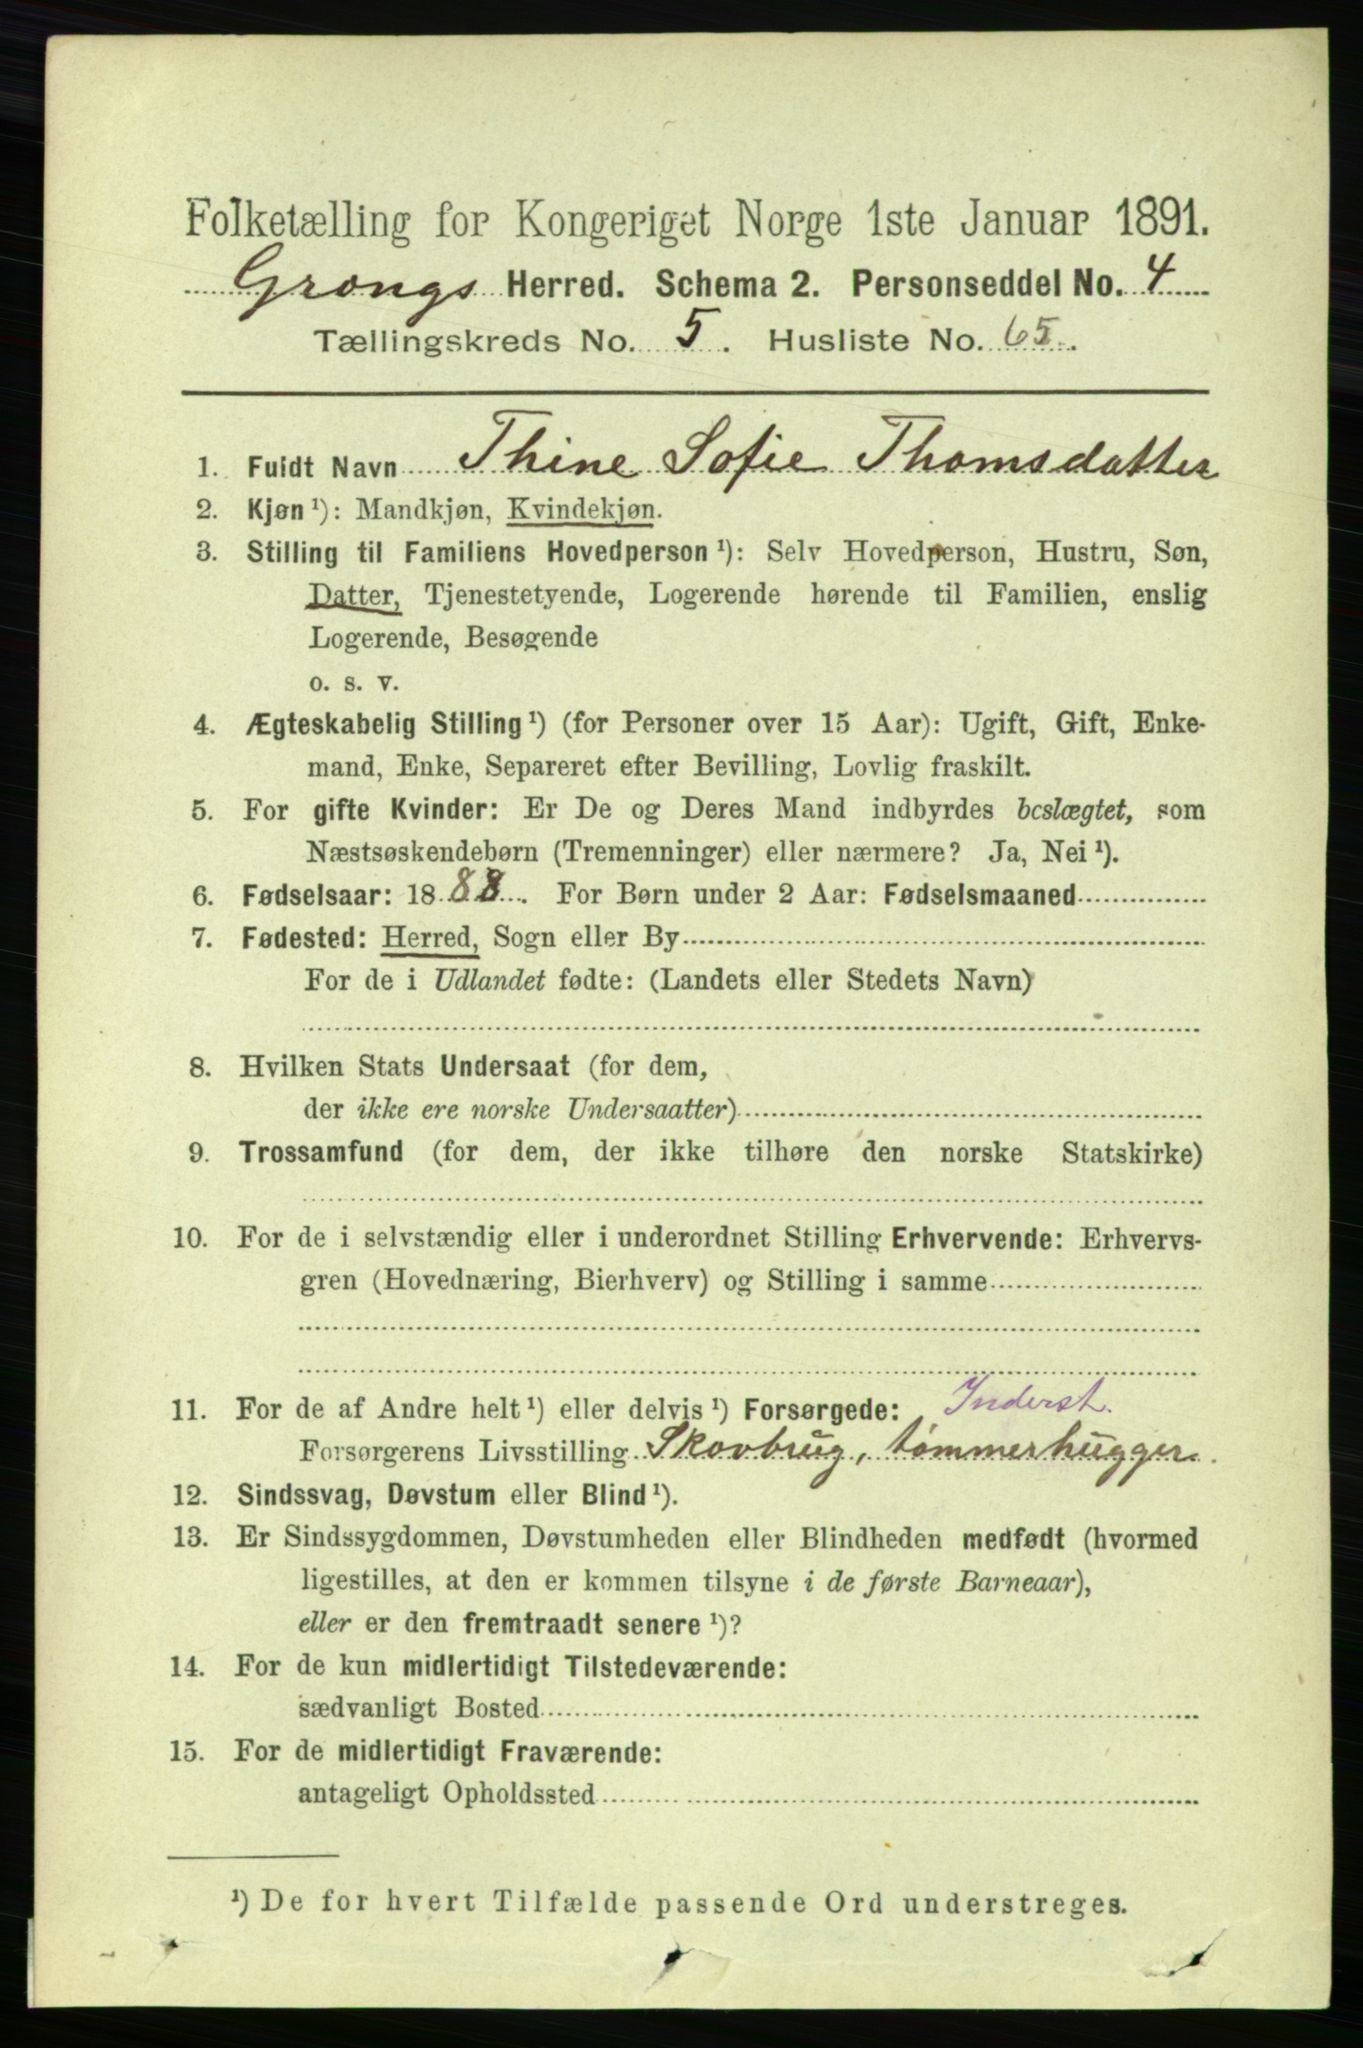 Folketælling for Kongeriget Norge 1ste Januar 1891.
Grongs Herred. Schema 2. Personseddel No. 4
Tællingskreds No. 5. Husliste No. 65.
1. Fuldt Navn Thine Sofie Thomsdatter
2. Kjøn ¹): Mandkjøn, Kvindekjøn.
3. Stilling til Familiens Hovedperson ¹): Selv Hovedperson, Hustru, Søn,
Datter, Tjenestetyende, Logerende hørende til Familien, enslig
Logerende, Besøgende
o. s. v.
4. Ægteskabelig Stilling ¹) (for Personer over 15 Aar): Ugift, Gift, Enke-
mand, Enke, Separeret efter Bevilling, Lovlig fraskilt.
5. For gifte Kvinder: Er De og Deres Mand indbyrdes beslægtet, som
Næstsøskendebørn (Tremenninger) eller nærmere? Ja, Nei ¹).
6. Fødselsaar: 1888. For Børn under 2 Aar: Fødselsmaaned
7. Fødested: Herred, Sogn eller By
For de i Udlandet fødte: (Landets eller Stedets Navn)
8. Hvilken Stats Undersaat (for dem,
der ikke ere norske Undersaatter)
9. Trossamfund (for dem, der ikke tilhøre den norske Statskirke)
10. For de i selvstændig eller i underordnet Stilling Erhvervende: Erhvervs-
gren (Hovednæring, Bierhverv) og Stilling i samme
11. For de af Andre helt ¹) eller delvis ¹) Forsørgede: Inderst.
Forsørgerens Livsstilling Skovbrug, tømmerhugger.
12. Sindssvag, Døvstum eller Blind ¹).
13. Er Sindssygdommen, Døvstumheden eller Blindheden medfødt (hvormed
ligestilles, at den er kommen tilsyne i de første Barneaar),
eller er den fremtraadt senere ¹)?
14. For de kun midlertidigt Tilstedeværende:
sædvanligt Bosted
15. For de midlertidigt Fraværende:
antageligt Opholdssted
¹) De for hvert Tilfælde passende Ord understreges.